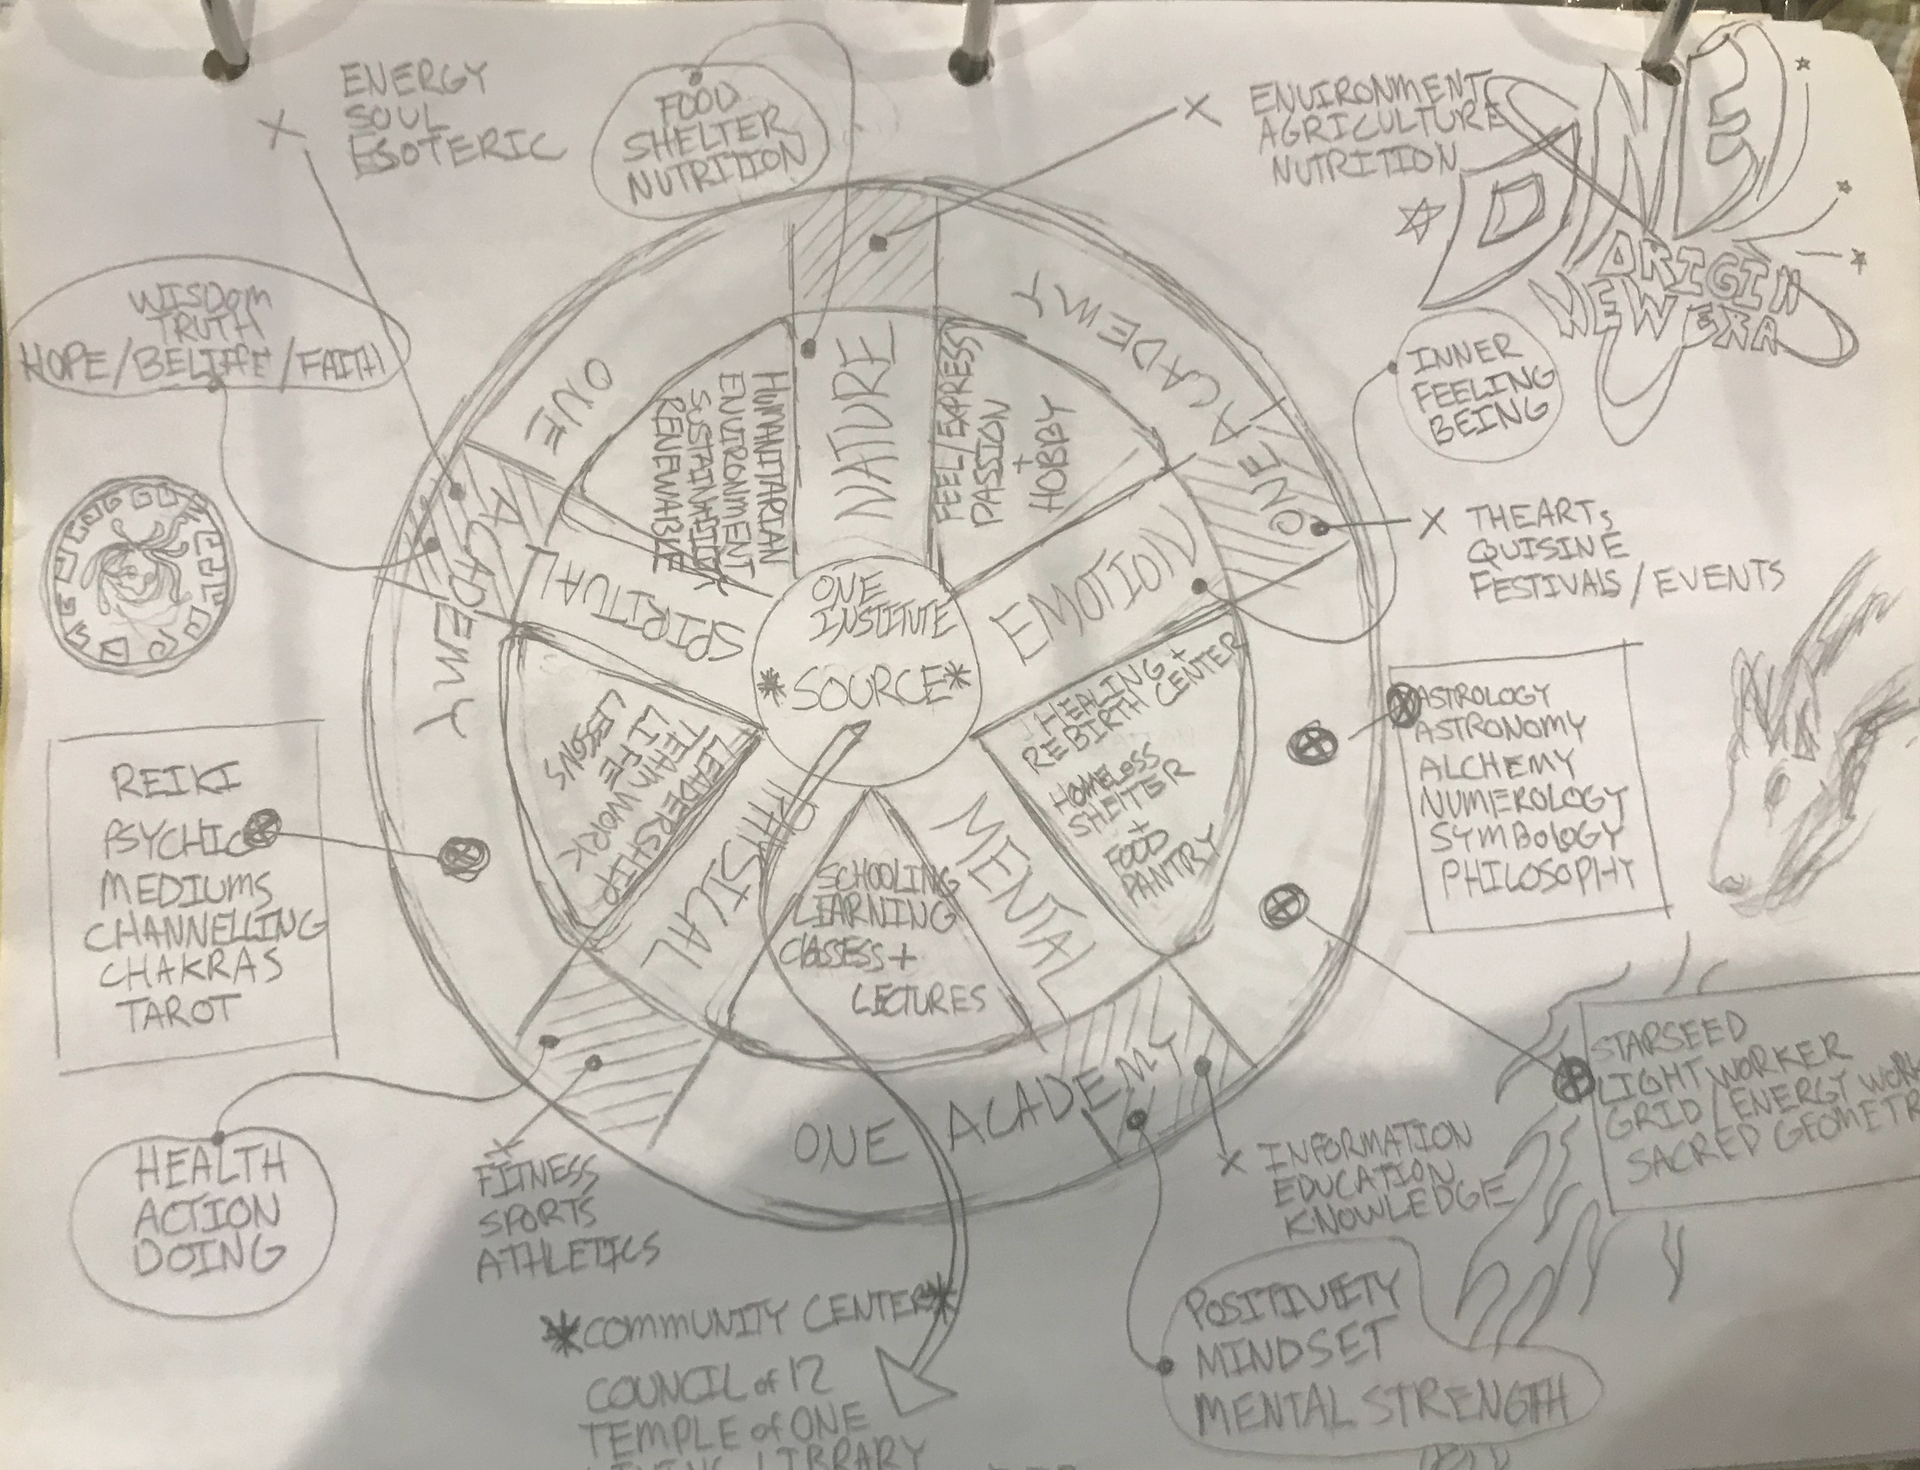 ENERGY
SOUL
ESOTERIC
FOOD
SHELTER
NUTRITION
ENVIRONMENT
AGRICULTURE
NUTRITION
ONE
ORIGIN
NEW ERA
WISDOM
TRUTH
HOPE/BELIEFE/FAITH
INNER
FEELING
BEING
THEARTS
QUISINE
FESTIVALS/EVENTS
ONE ACADEMY
ONE ACADEMY
ONE ACADEMY
NATURE
EMOTION
MENTAL
PHYSICAL
SPIRITUAL
HUMANITARIAN
ENVIRONMENT
RENEWABLE
FEEL/EXPRESS
PASSION
+
HOBBY
ONE
INSTITUTE
*SOURCE*
HEALING +
REBIRTH CENTER
HOMELESS
SHELTER
+
FOOD
PANTRY
SCHOOLING
LEARNING
CLASSESS +
LECTURES
LEADERSHIP
TEAMWORK
LIFE
LESSONS
ASTROLOGY
ASTRONOMY
ALCHEMY
NUMEROLOGY
SYMBOLOGY
PHILOSOPHY
REIKI
PSYCHIC
MEDIUMS
CHANNELLING
CHAKRAS
TAROT
STARSEED
LIGHT WORKER
GRID/ENERGY WORK
SACRED GEOMETR
HEALTH
ACTION
DOING
FITNESS
SPORTS
ATHLETICS
INFORMATION
EDUCATION
KNOWLEDGE
POSITIVIETY
MINDSET
MENTAL STRENGTH
*COMMUNITY CENTER*
COUNCIL of 12
TEMPLE of ONE
LIVING LIBRARY